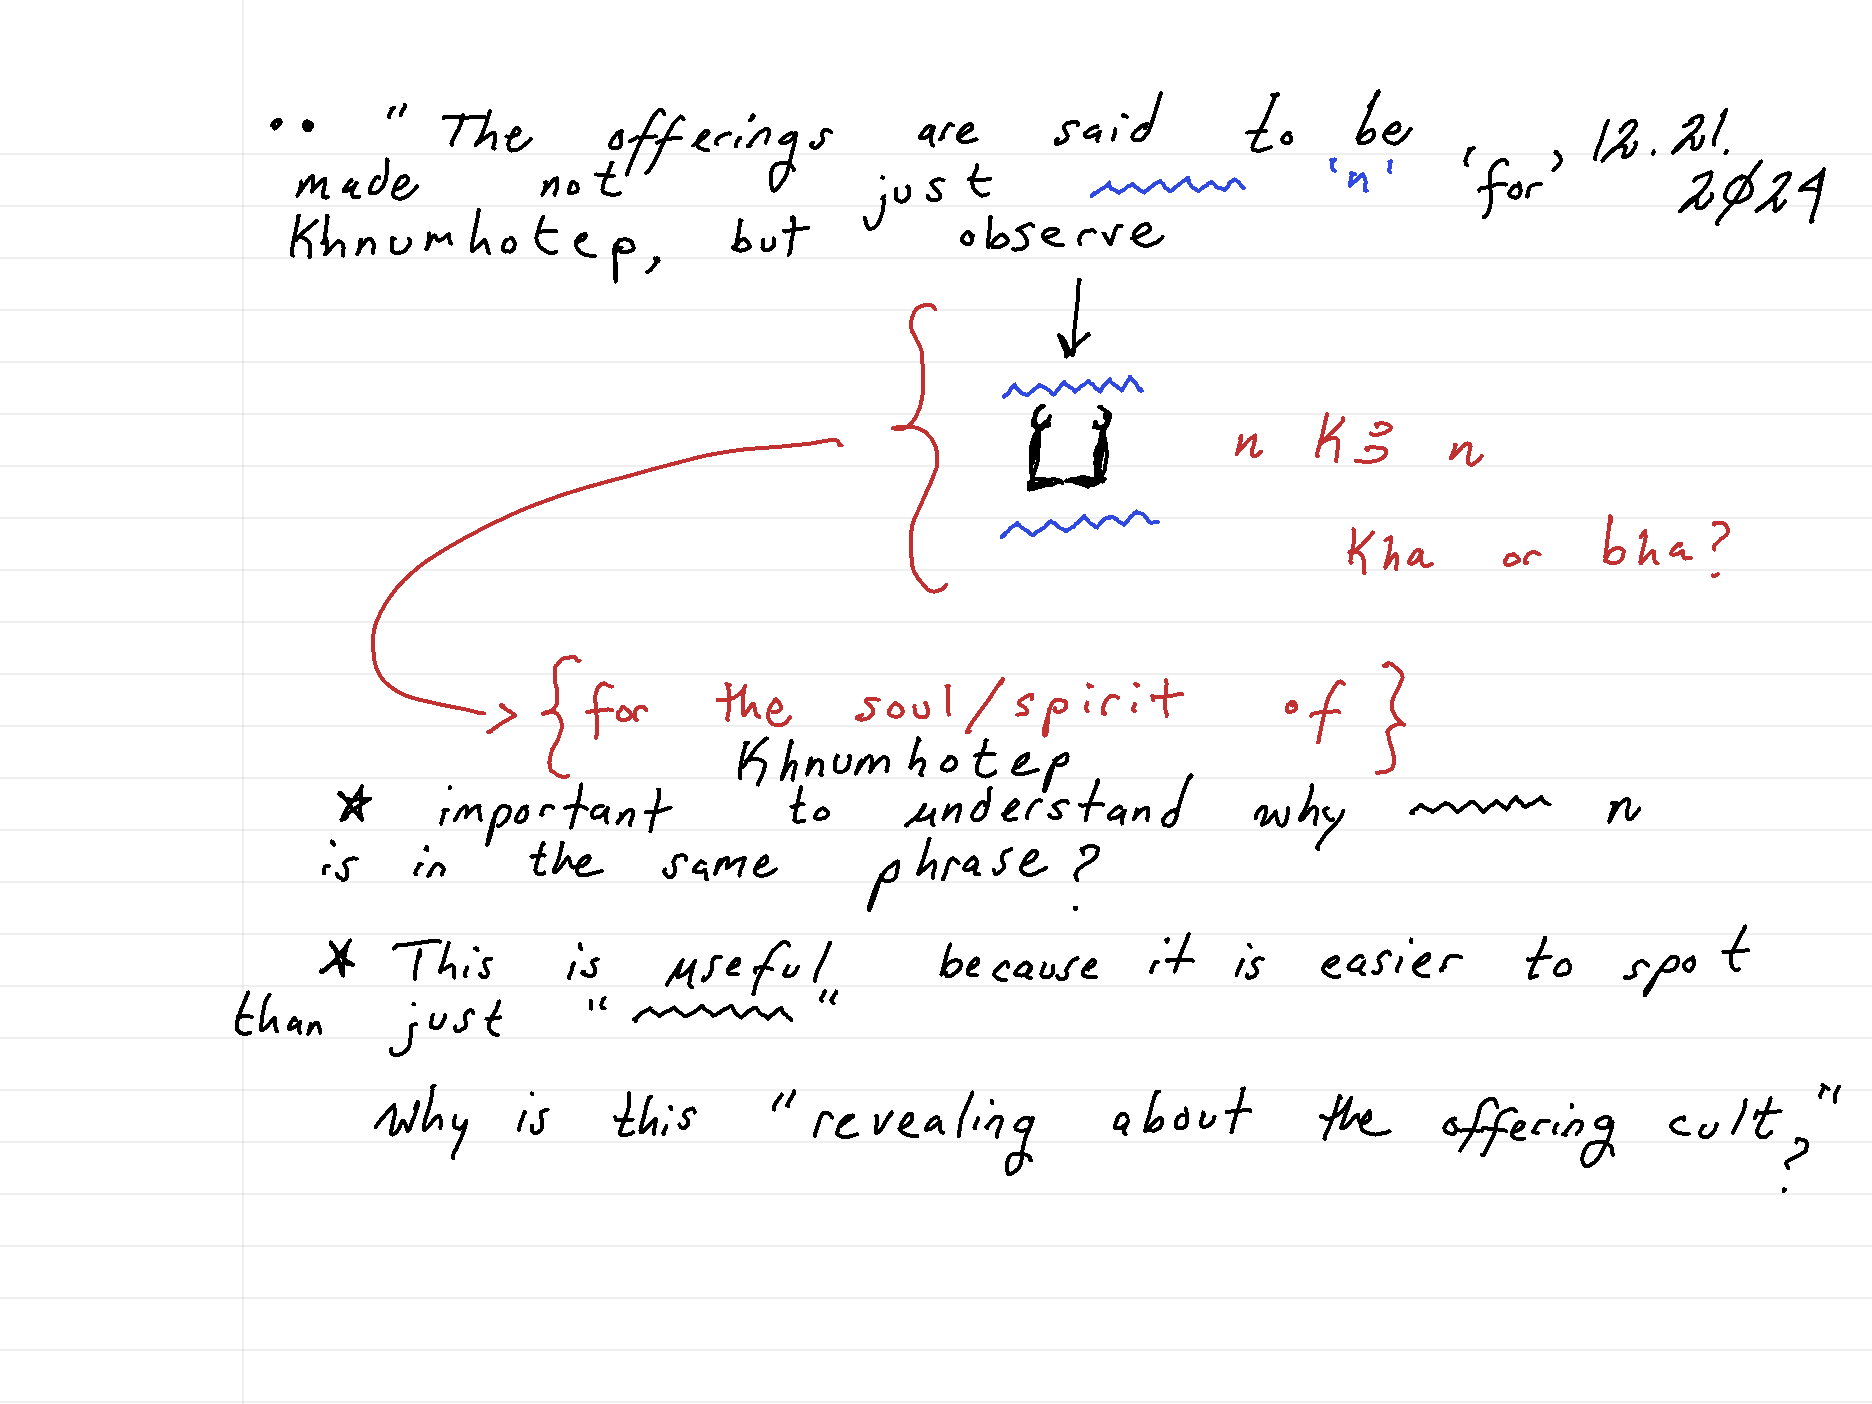 •• "The offerings are said to be 12.21.
made not just 𓈖 'n' 'for' 2024
Khnumhotep, but observe
↓
𓈖
𓂓 n kꜣ n
𓈖
Kha or bha?
{for the soul/spirit of}
Khnumhotep
☆ important to understand why 𓈖 n
is in the same phrase?
☆ This is useful because it is easier to spot
than just "𓈖"
Why is this "revealing about the offering cult"?